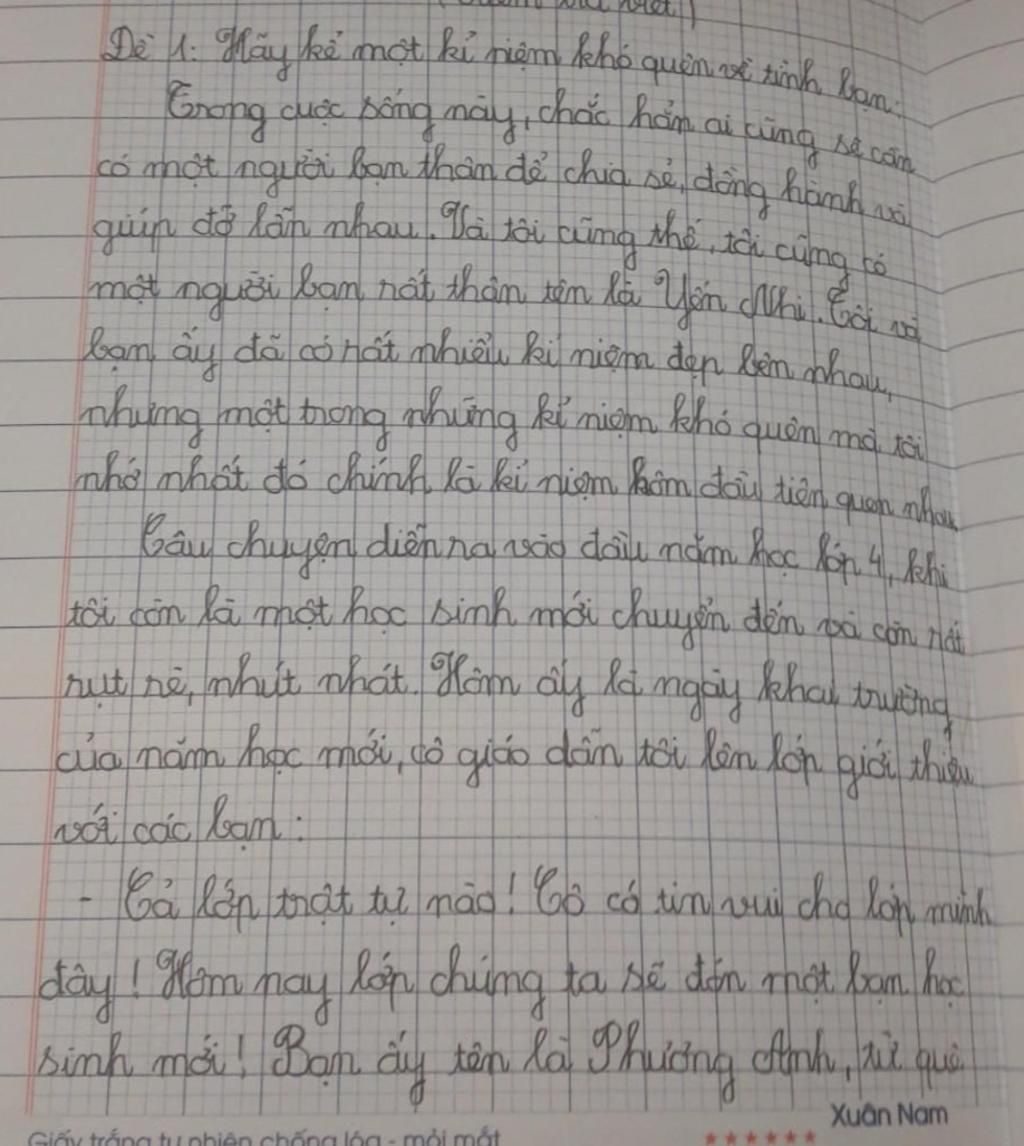 Đề 1: Hãy kể một kỉ niệm khó quên về tình bạn.
Trong cuộc sống này, chắc hẳn ai cũng sẽ cần
có một người bạn thân để chia sẻ, đồng hành và
giúp đỡ lẫn nhau. Và tôi cũng thế, tôi cũng có
một người bạn rất thân tên là Yến Nhi. Tôi và
bạn ấy đã có rất nhiều kỉ niệm đẹp bên nhau,
nhưng một trong những kỉ niệm khó quên mà tôi
nhớ nhất đó chính là kỉ niệm hôm đầu tiên quen nhau
Câu chuyện diễn ra vào đầu năm học lớp 4, khi
tôi còn là một học sinh mới chuyển đến và còn rất
rụt rè, nhút nhát. Hôm ấy là ngày khai trường
của năm học mới, cô giáo dẫn tôi lên lớp giới thiệu
với các bạn:
- Cả lớp trật tự nào! Cô có tin vui cho lớp mình
đây! Hôm nay lớp chúng ta sẽ đón một bạn học
sinh mới! Bạn ấy tên là Phương Anh, từ quê
Xuân Nam
Giấy trắng tự nhiên chống lóa - mỏi mắt